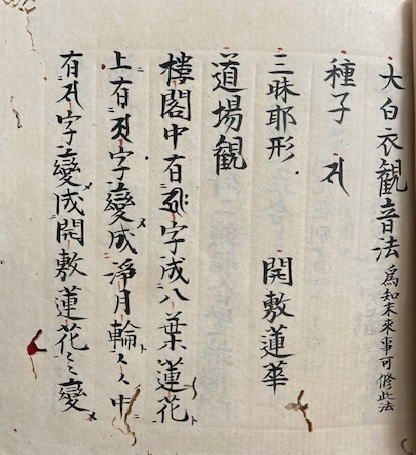 大白衣觀音法 為知未來事可修此法
種子
三昧耶形 開敷蓮華
道場觀
樓閣中有字成八葉蓮花ト
上有字變成淨月輪ト々々中
有字變成開敷蓮花々變